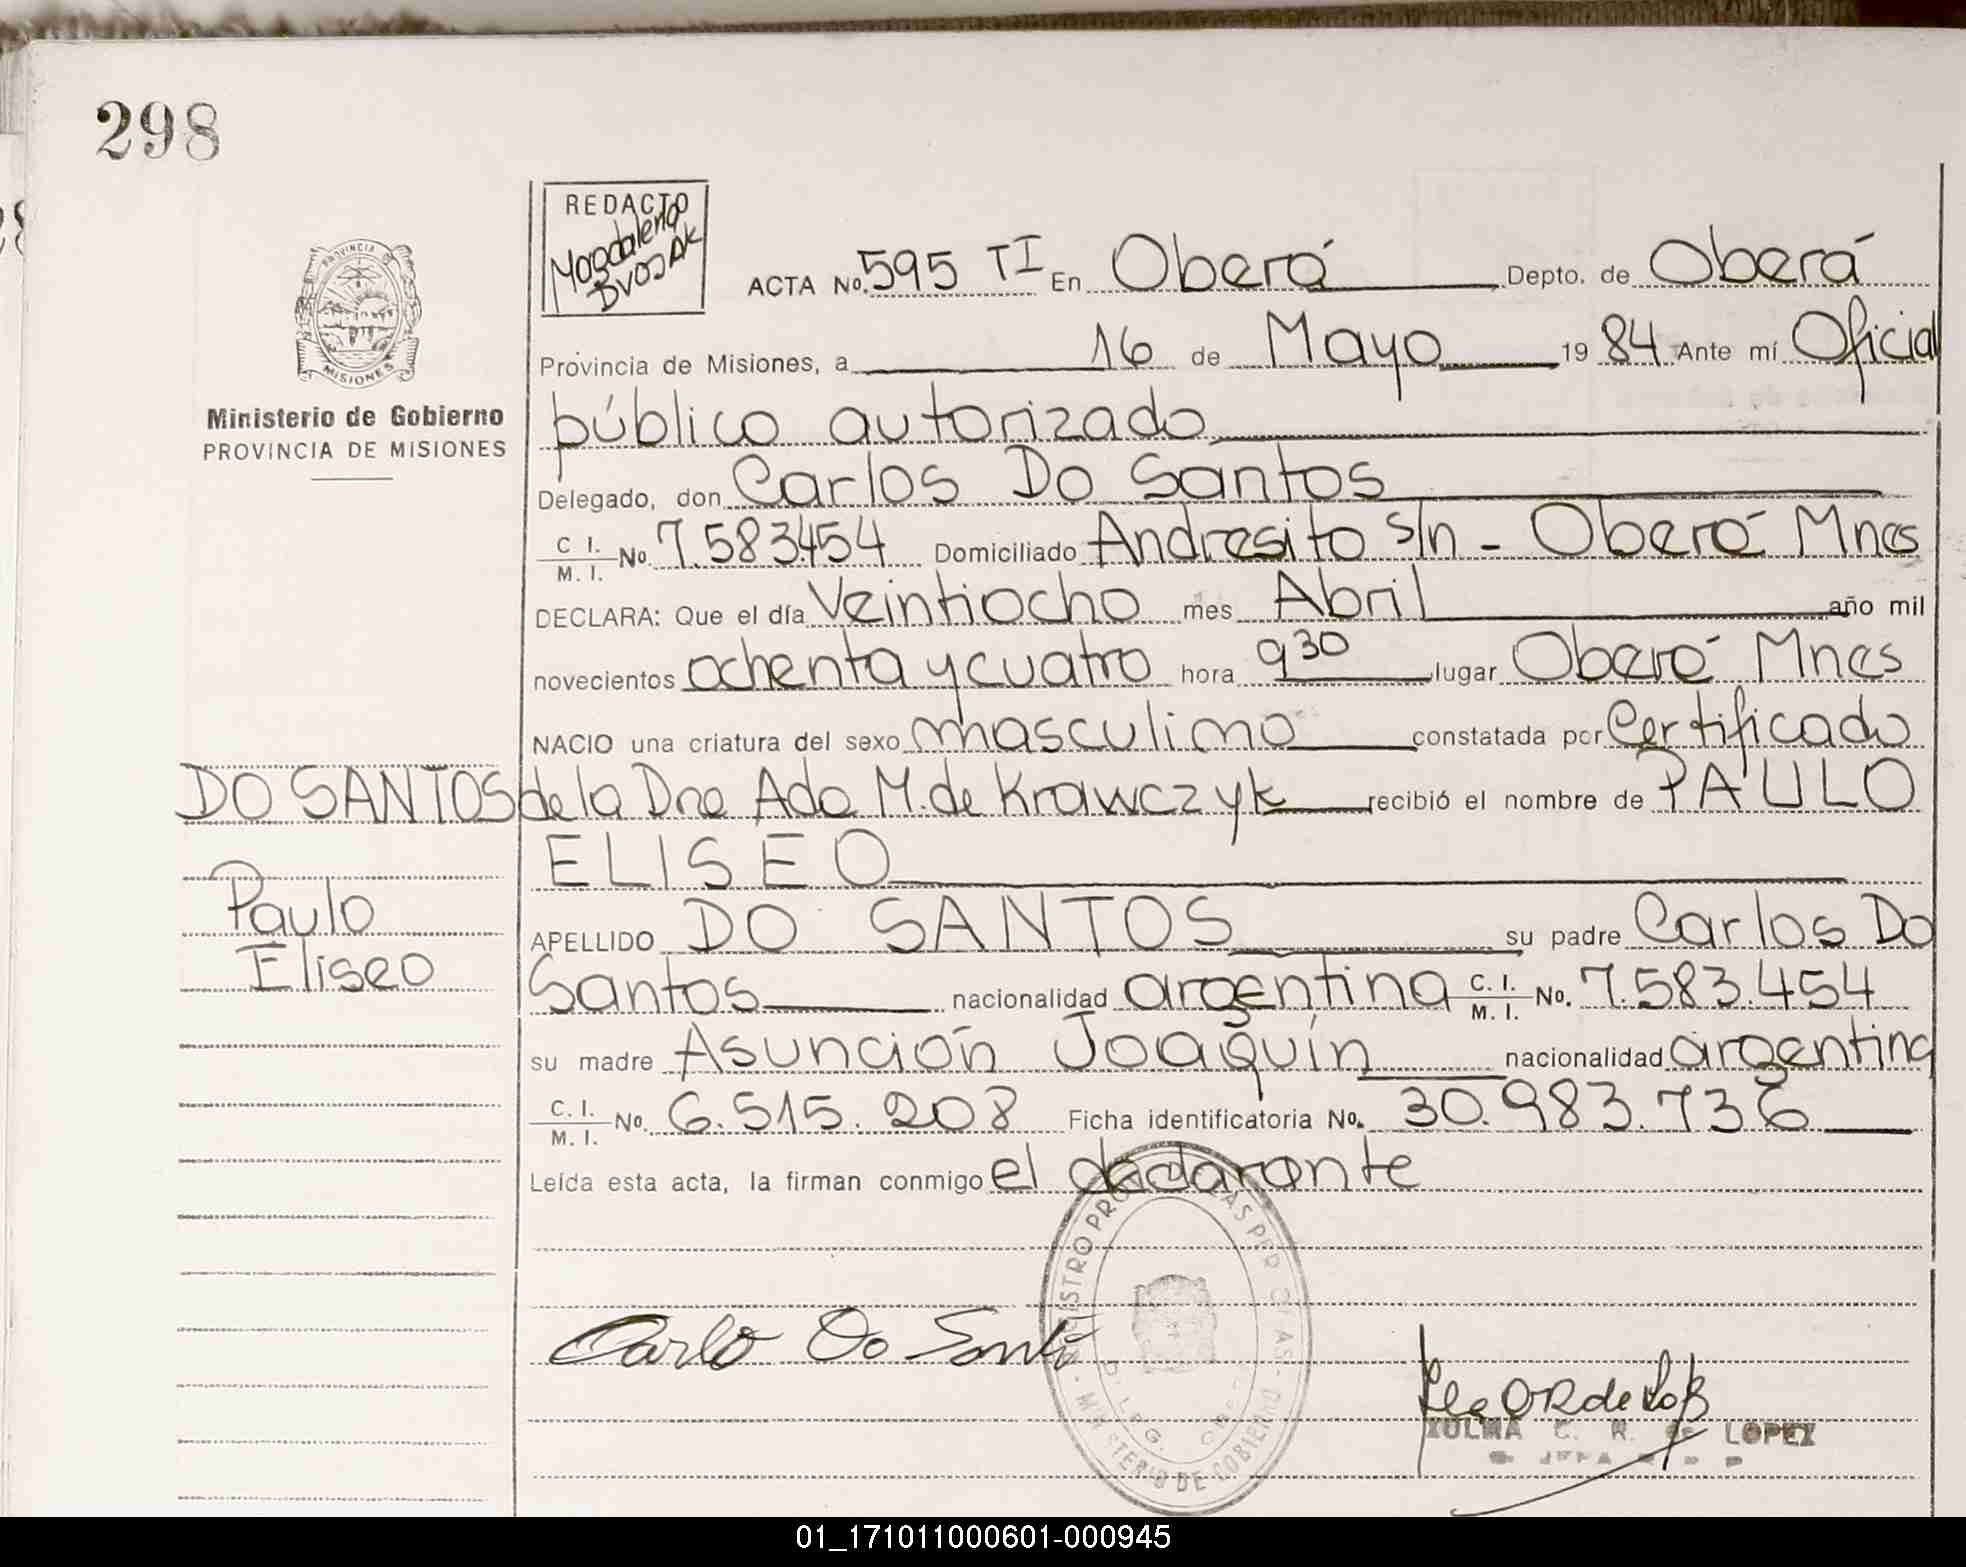 298
REDACTO
Magdalena
BVOSAK
ACTA No. 595 TI En Oberá Depto. de Oberá
PROVINCIA
MISIONES
Provincia de Misiones, a 16 de Mayo 19 84 Ante mí Oficial
Ministerio de Gobierno
PROVINCIA DE MISIONES
público autorizado
Delegado, don Carlos Do Santos
C I. M. I. No. 7.583.454 Domiciliado Andresito s/n - Oberá Mnes
DECLARA: Que el día Veintiocho mes Abril año mil
novecientos ochenta y cuatro hora 9 30 lugar Oberá Mnes
NACIO una criatura del sexo masculino constatada por Certificado
DO SANTOS
de la Dra Ada M. de Krawczyk recibió el nombre de PAULO
ELISEO
Paulo
Eliseo
APELLIDO DO SANTOS su padre Carlos Do
Santos nacionalidad argentina C. I. M. I. No. 7.583.454
su madre Asunción Joaquín nacionalidad argentina
C. I. M. I. No. 6.515.208 Ficha identificatoria No. 30.983.736
Leída esta acta, la firman conmigo el declarante
Carlo Do Santos
MINISTERIO DE GOBIERNO
ZULMA C. R. de LOPEZ
01_171011000601-000945